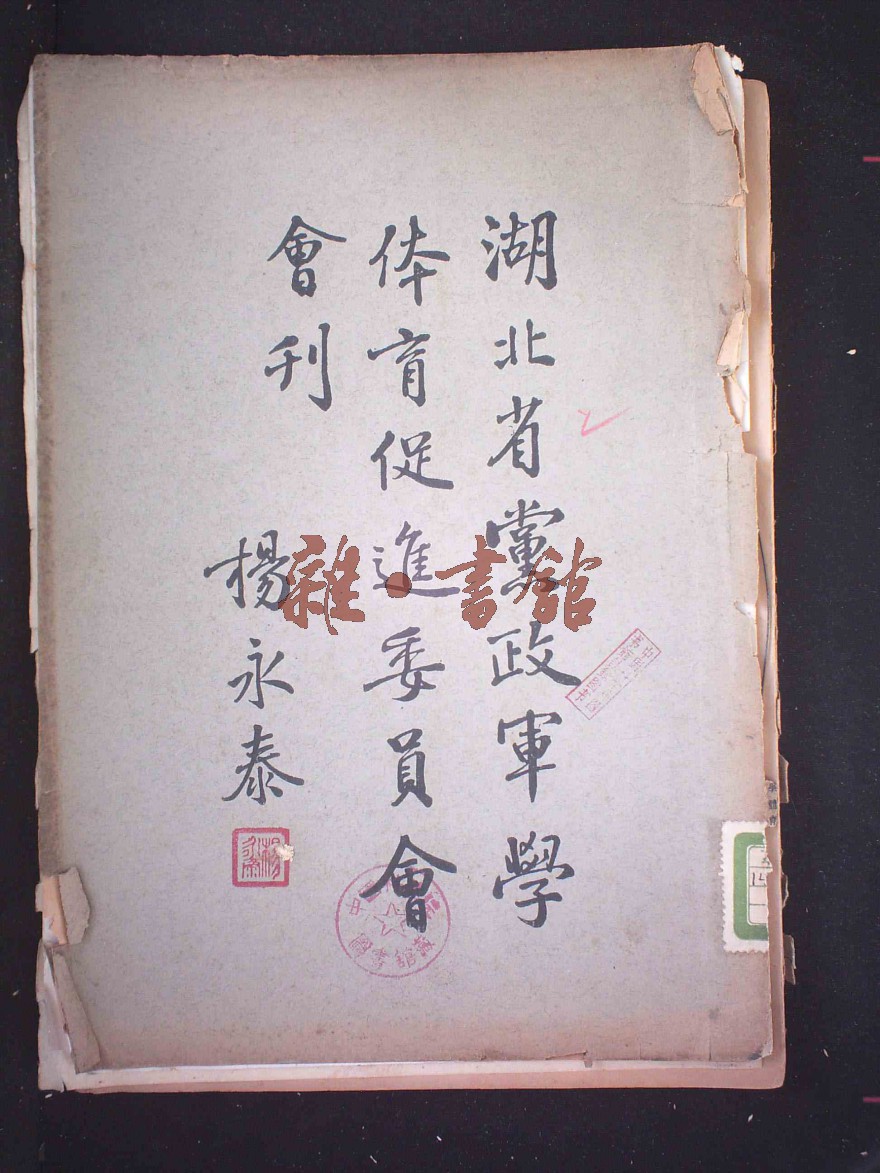 湖北省黨政軍學
体育促進委員會
會刊
楊永泰
雜·書館